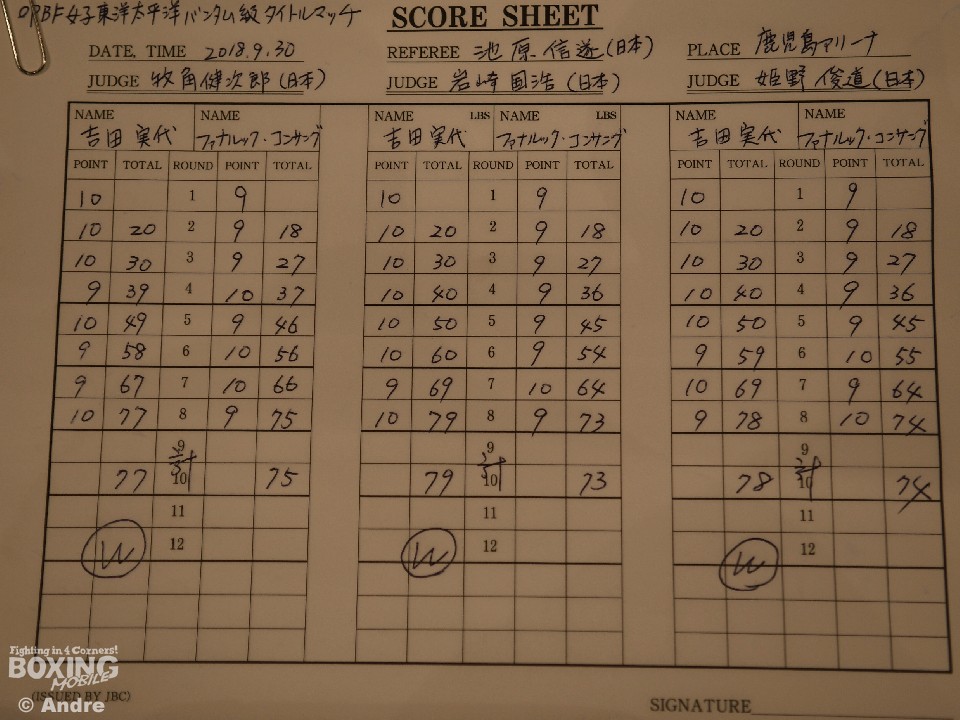 OPBF女子東洋太平洋バンタム級タイトルマッチ SCORE SHEET
DATE, TIME 2018.9.30 REFEREE 池原信遂(日本) PLACE 鹿児島アリーナ
JUDGE 牧角健次郎(日本) JUDGE 岩崎国浩(日本) JUDGE 姫野俊道(日本)
NAME NAME NAME LBS NAME LBS NAME NAME
吉田実代 ファナルック・コンサング 吉田実代 ファナルック・コンサング 吉田実代 ファナルック・コンサング
POINT TOTAL ROUND POINT TOTAL POINT TOTAL ROUND POINT TOTAL POINT TOTAL ROUND POINT TOTAL
10 1 9 10 1 9 10 1 9
10 20 2 9 18 10 20 2 9 18 10 20 2 9 18
10 30 3 9 27 10 30 3 9 27 10 30 3 9 27
9 39 4 10 37 10 40 4 9 36 10 40 4 9 36
10 49 5 9 46 10 50 5 9 45 10 50 5 9 45
9 58 6 10 56 10 60 6 9 54 9 59 6 10 55
9 67 7 10 66 9 69 7 10 64 10 69 7 9 64
10 77 8 9 75 10 79 8 9 73 9 78 8 10 74
9 9 9
77 計 10 75 79 計 10 73 78 計 10 74
11 11 11
W 12 W 12 W 12
Fighting in 4 Corners!
BOXING
MOBILE
(ISSUED BY JBC)
© Andre
SIGNATURE